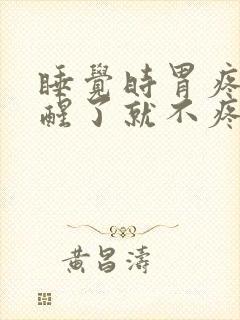 睡覺時胃疼
醒了就不疼
黄昌濤